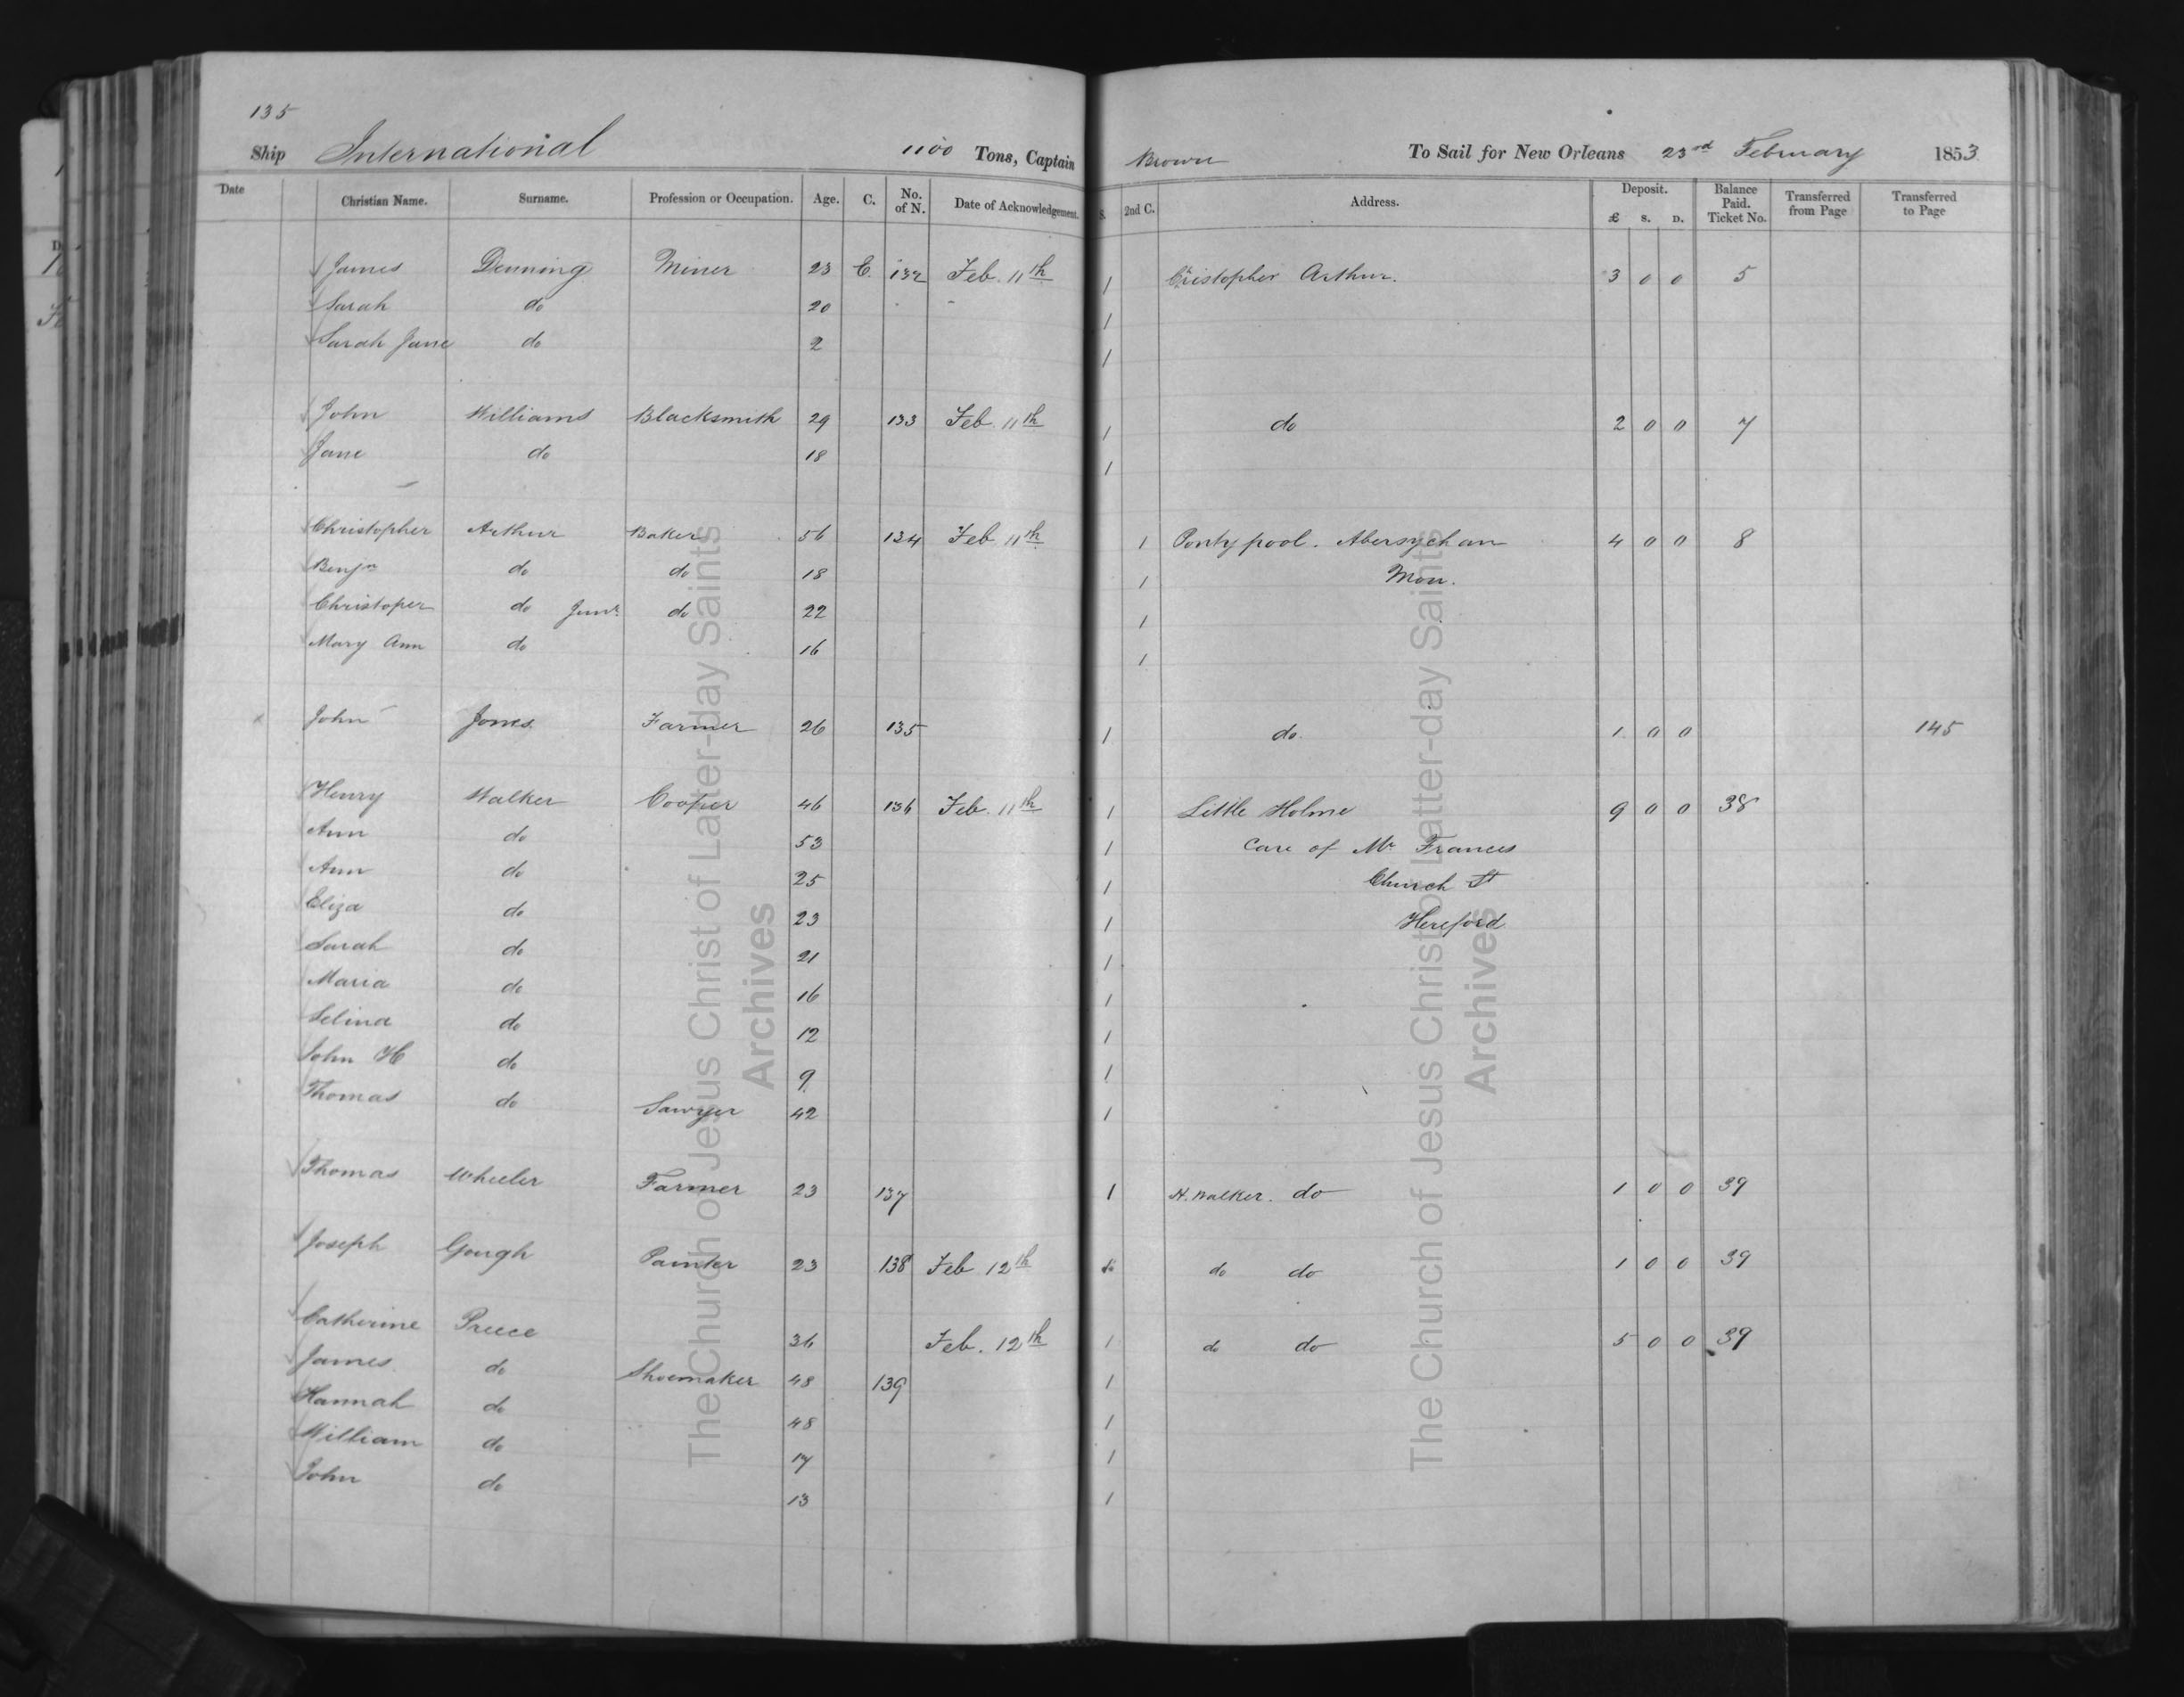 135
Ship International 1100 Tons, Captain Brown To Sail for New Orleans 23rd February 1853
Date Christian Name. Surname. Profession or Occupation. Age. C. No. of N. Date of Acknowledgement. S. 2nd C. Address. Deposit. £ S. D. Balance Paid. Ticket No. Transferred from Page Transferred to Page
James Denning Miner 23 C. 132 Feb. 11th 1 Christopher Arthur. 3 0 0 5
Sarah do 20 1
Sarah Jane do 2 1
John Williams Blacksmith 29 133 Feb. 11th 1 do 2 0 0 7
Jane do 18 1
Christopher Arthur Baker 56 134 Feb 11th 1 Pontypool. Abersychan 4 0 0 8
Benjn do do 18 1 Mon.
Christoper do Junr. do 22 1
Mary Ann do 16 1
John Jones Farmer 26 135 1 do. 1 0 0 145
Henry Walker Cooper 46 136 Feb. 11th 1 Little Holme 9 0 0 38
Ann do 53 1 Care of Mr Frances
Ann do 25 1 Church St
Eliza do 23 1 Hereford
Sarah do 21 1
Maria do 16 1
Selina do 12 1
John H do 9 1
Thomas do Sawyer 42 1
Thomas Wheeler Farmer 23 137 1 H. Walker. do 1 0 0 39
Joseph Gough Painter 23 138 Feb 12th do do 1 0 0 39
Catherine Preece 36 Feb. 12th 1 do do 5 0 0 39
James do Shoemaker 48 139 1
Hannah do 48 1
William do 17 1
John do 13 1
The Church of Jesus Christ of Latter-day Saints
Archives
The Church of Jesus Christ of Latter-day Saints
Archives